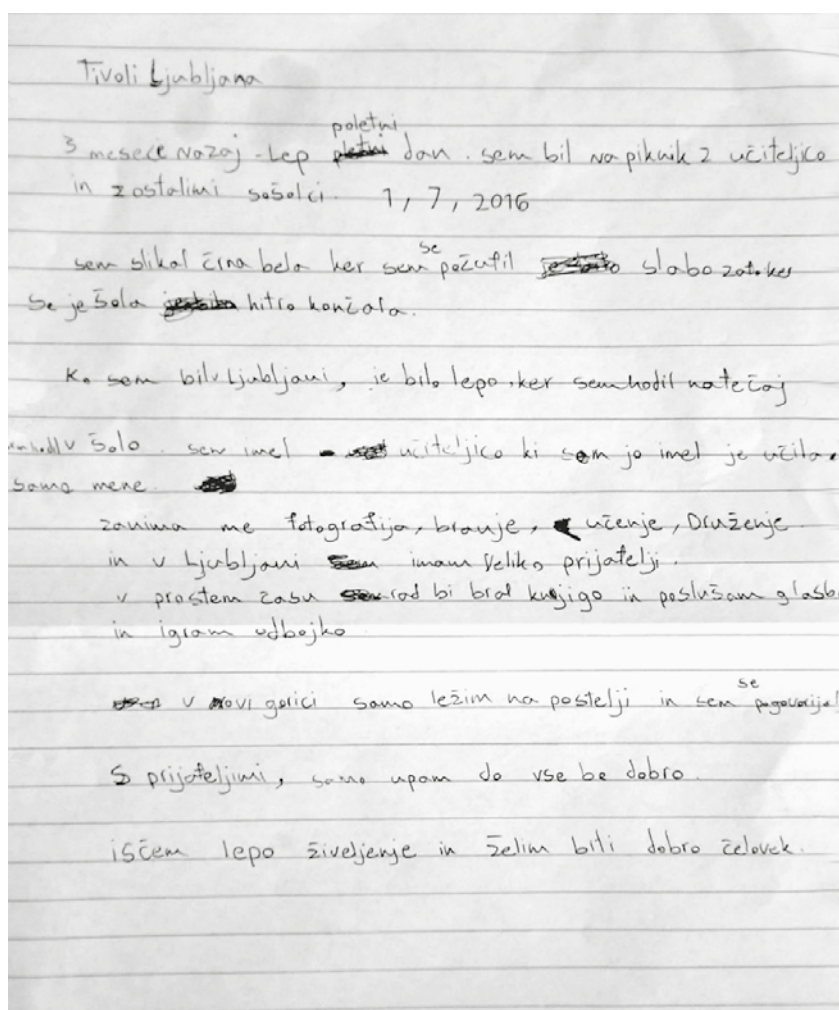 Tivoli Ljubljana
3 mesece nazaj - Lep poletni dan. sem bil na piknik z učiteljico
in z ostalimi sošolci. 1, 7, 2016
sem slikal črna bela ker sem se počutil slabo zato ker
se je šola hitro končala.
Ko sem bil v Ljubljani, je bilo lepo. ker sem hodil na tečaj
v šolo. sem imel učiteljico ki sem jo imel je učila.
samo mene.
zanima me fotografija, branje, učenje, Druženje.
in v Ljubljani imam Veliko prijatelji.
v prostem času rad bi bral knjigo in poslušam glasb
in igram odbojko
v Novi gorici samo ležim na postelji in sem se pogovarjal
S prijateljimi, samo upam da vse be dobro.
iščem lepo živeljenje in želim biti dobro čelovek.